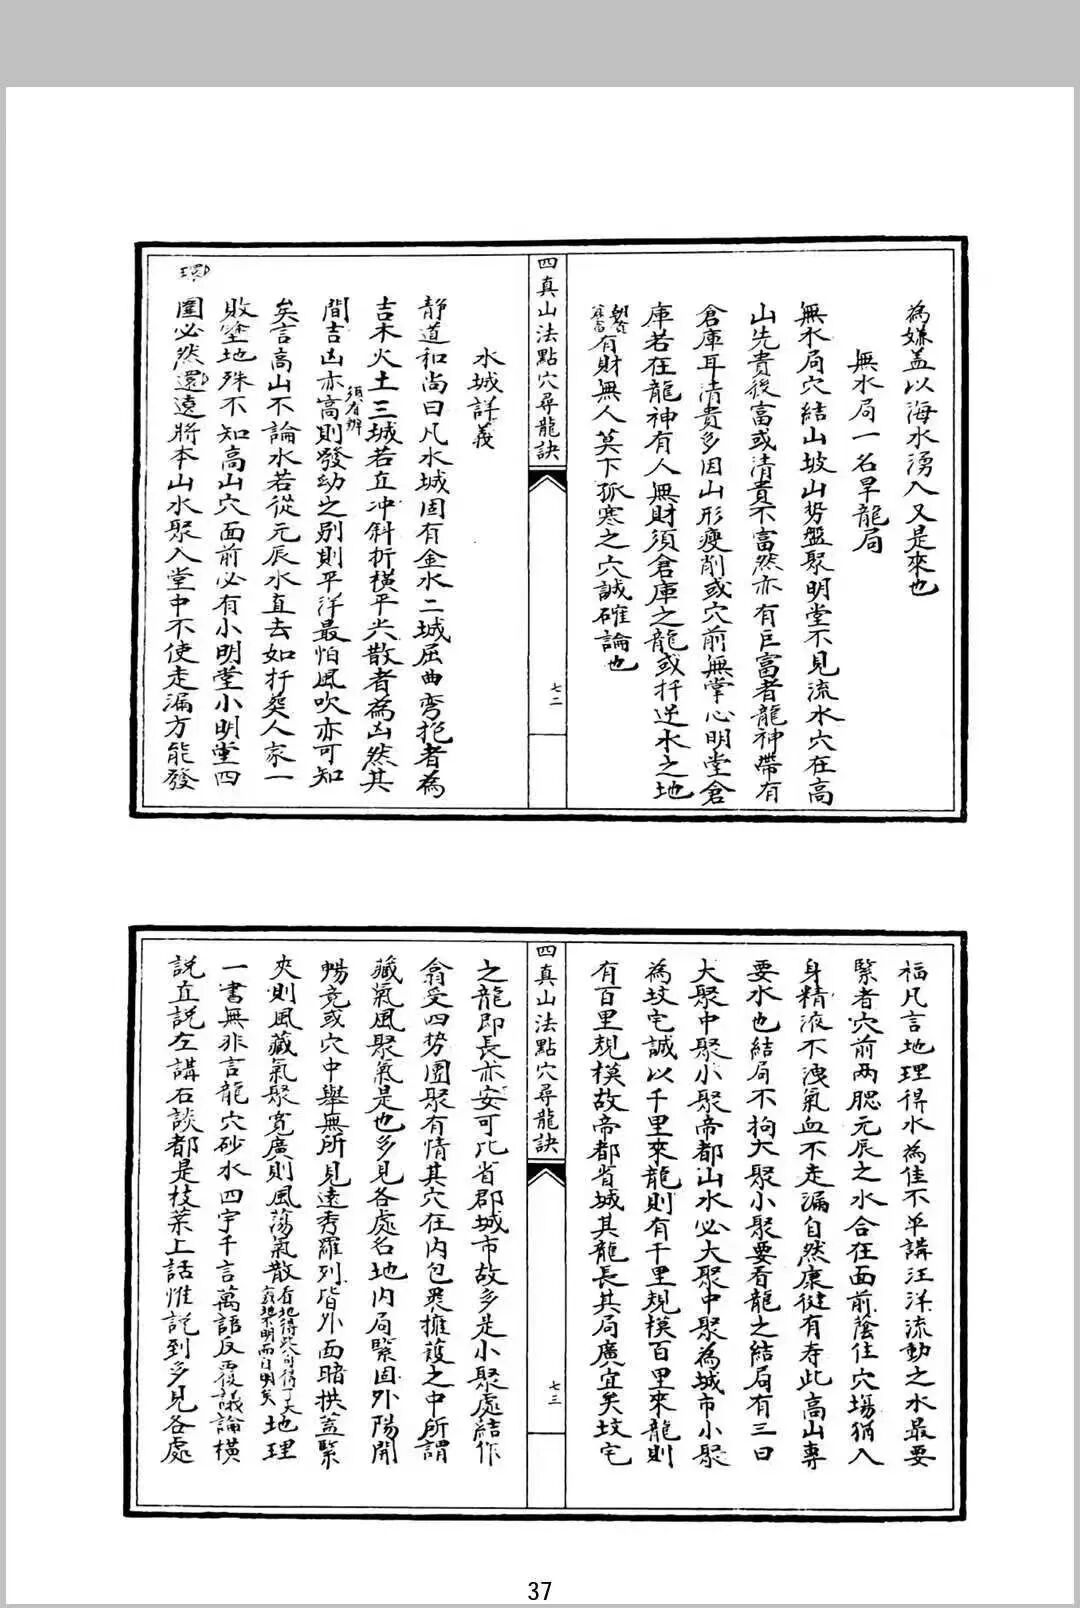 為嫌盖以海水湧入又是來也
無水局一名旱龍局
無水局穴結山坡山势盤聚明堂不見流水穴在高
山先貴後富或清貴不富然亦有巨富者龍神帶有
倉庫耳清貴多因山形瘦削或穴前無掌心明堂倉
庫若在龍神有人無財須倉庫之龍或扦逆水之地
有財無人莫下孤寒之穴誠確論也
四真山法點穴尋龍訣
七二
水城詳義
靜道和尚曰凡水城固有金水二城屈曲弯抱者為
吉木火土三城若直冲斜折橫平尖散者為凶然其
間吉凶亦須有辨高則發幼之别則平洋最怕風吹亦可知
矣言高山不論水若從元辰水直去如扦葵人家一
敗塗地殊不知高山穴面前必有小明堂小明堂四
環
圍必然還遶將本山水聚入堂中不使走漏方能發
福凡言地理得水為佳不单講汪洋流動之水最要
緊者穴前两腮元辰之水合在面前蔭住穴塲猶人
身精液不洩氣血不走漏自然康健有寿此高山專
要水也結局不拘大聚小聚要看龍之結局有三曰
大聚中聚小聚帝都山水必大聚中聚為城市小聚
為坟宅誠以千里來龍則有千里規模百里來龍則
有百里規模故帝都省城其龍長其局廣宜矣坟宅
四真山法點穴尋龍訣
七三
之龍即長亦安可比省郡城市故多是小聚處結作
翕受四势團聚有情其穴在内包裹擁護之中所謂
藏氣風聚氣是也多見各處名地内局緊固外陽開
暢竟或穴中舉無所見遠秀羅列皆外面暗拱蓋緊
夾則風藏氣聚寬廣則風蕩氣散看地得此可得丁天真地不明而自明矣地理
一書無非言龍穴砂水四字千言萬語反覆議論橫
説直説左講右談都是枝葉上話惟説到多見各處
37